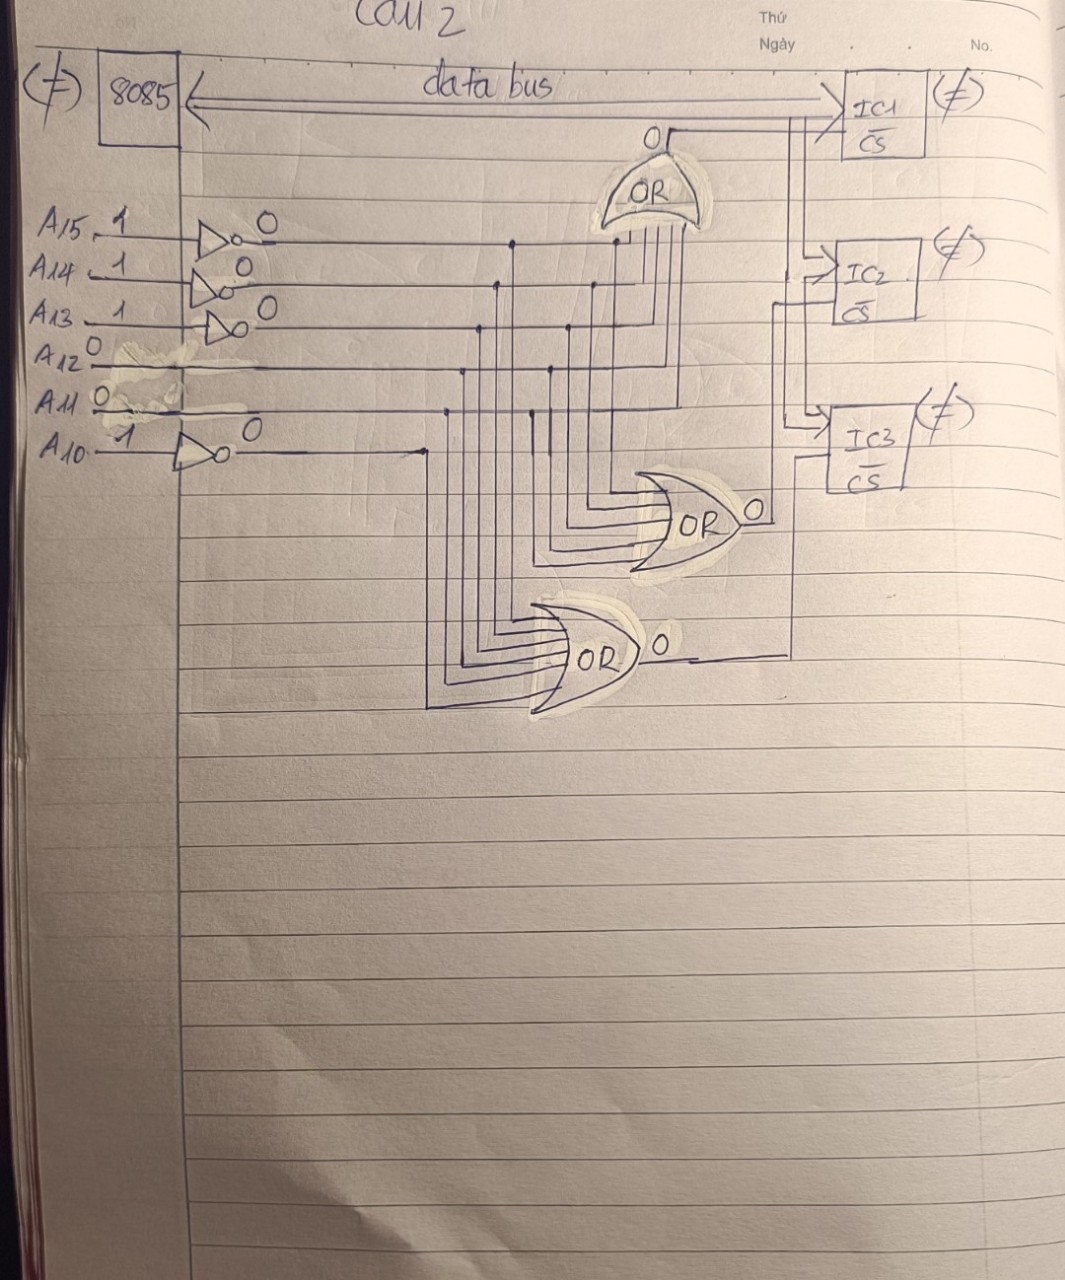 Câu 2
Thứ
Ngày . . No.
(≠) 8085 data bus IC1 (≠)
CS
0
OR
A15 1 0
A14 1 0
IC2 (≠)
CS
A13 1 0
A12 0
A11 0
A10 1 0
IC3 (≠)
CS
OR 0
OR 0